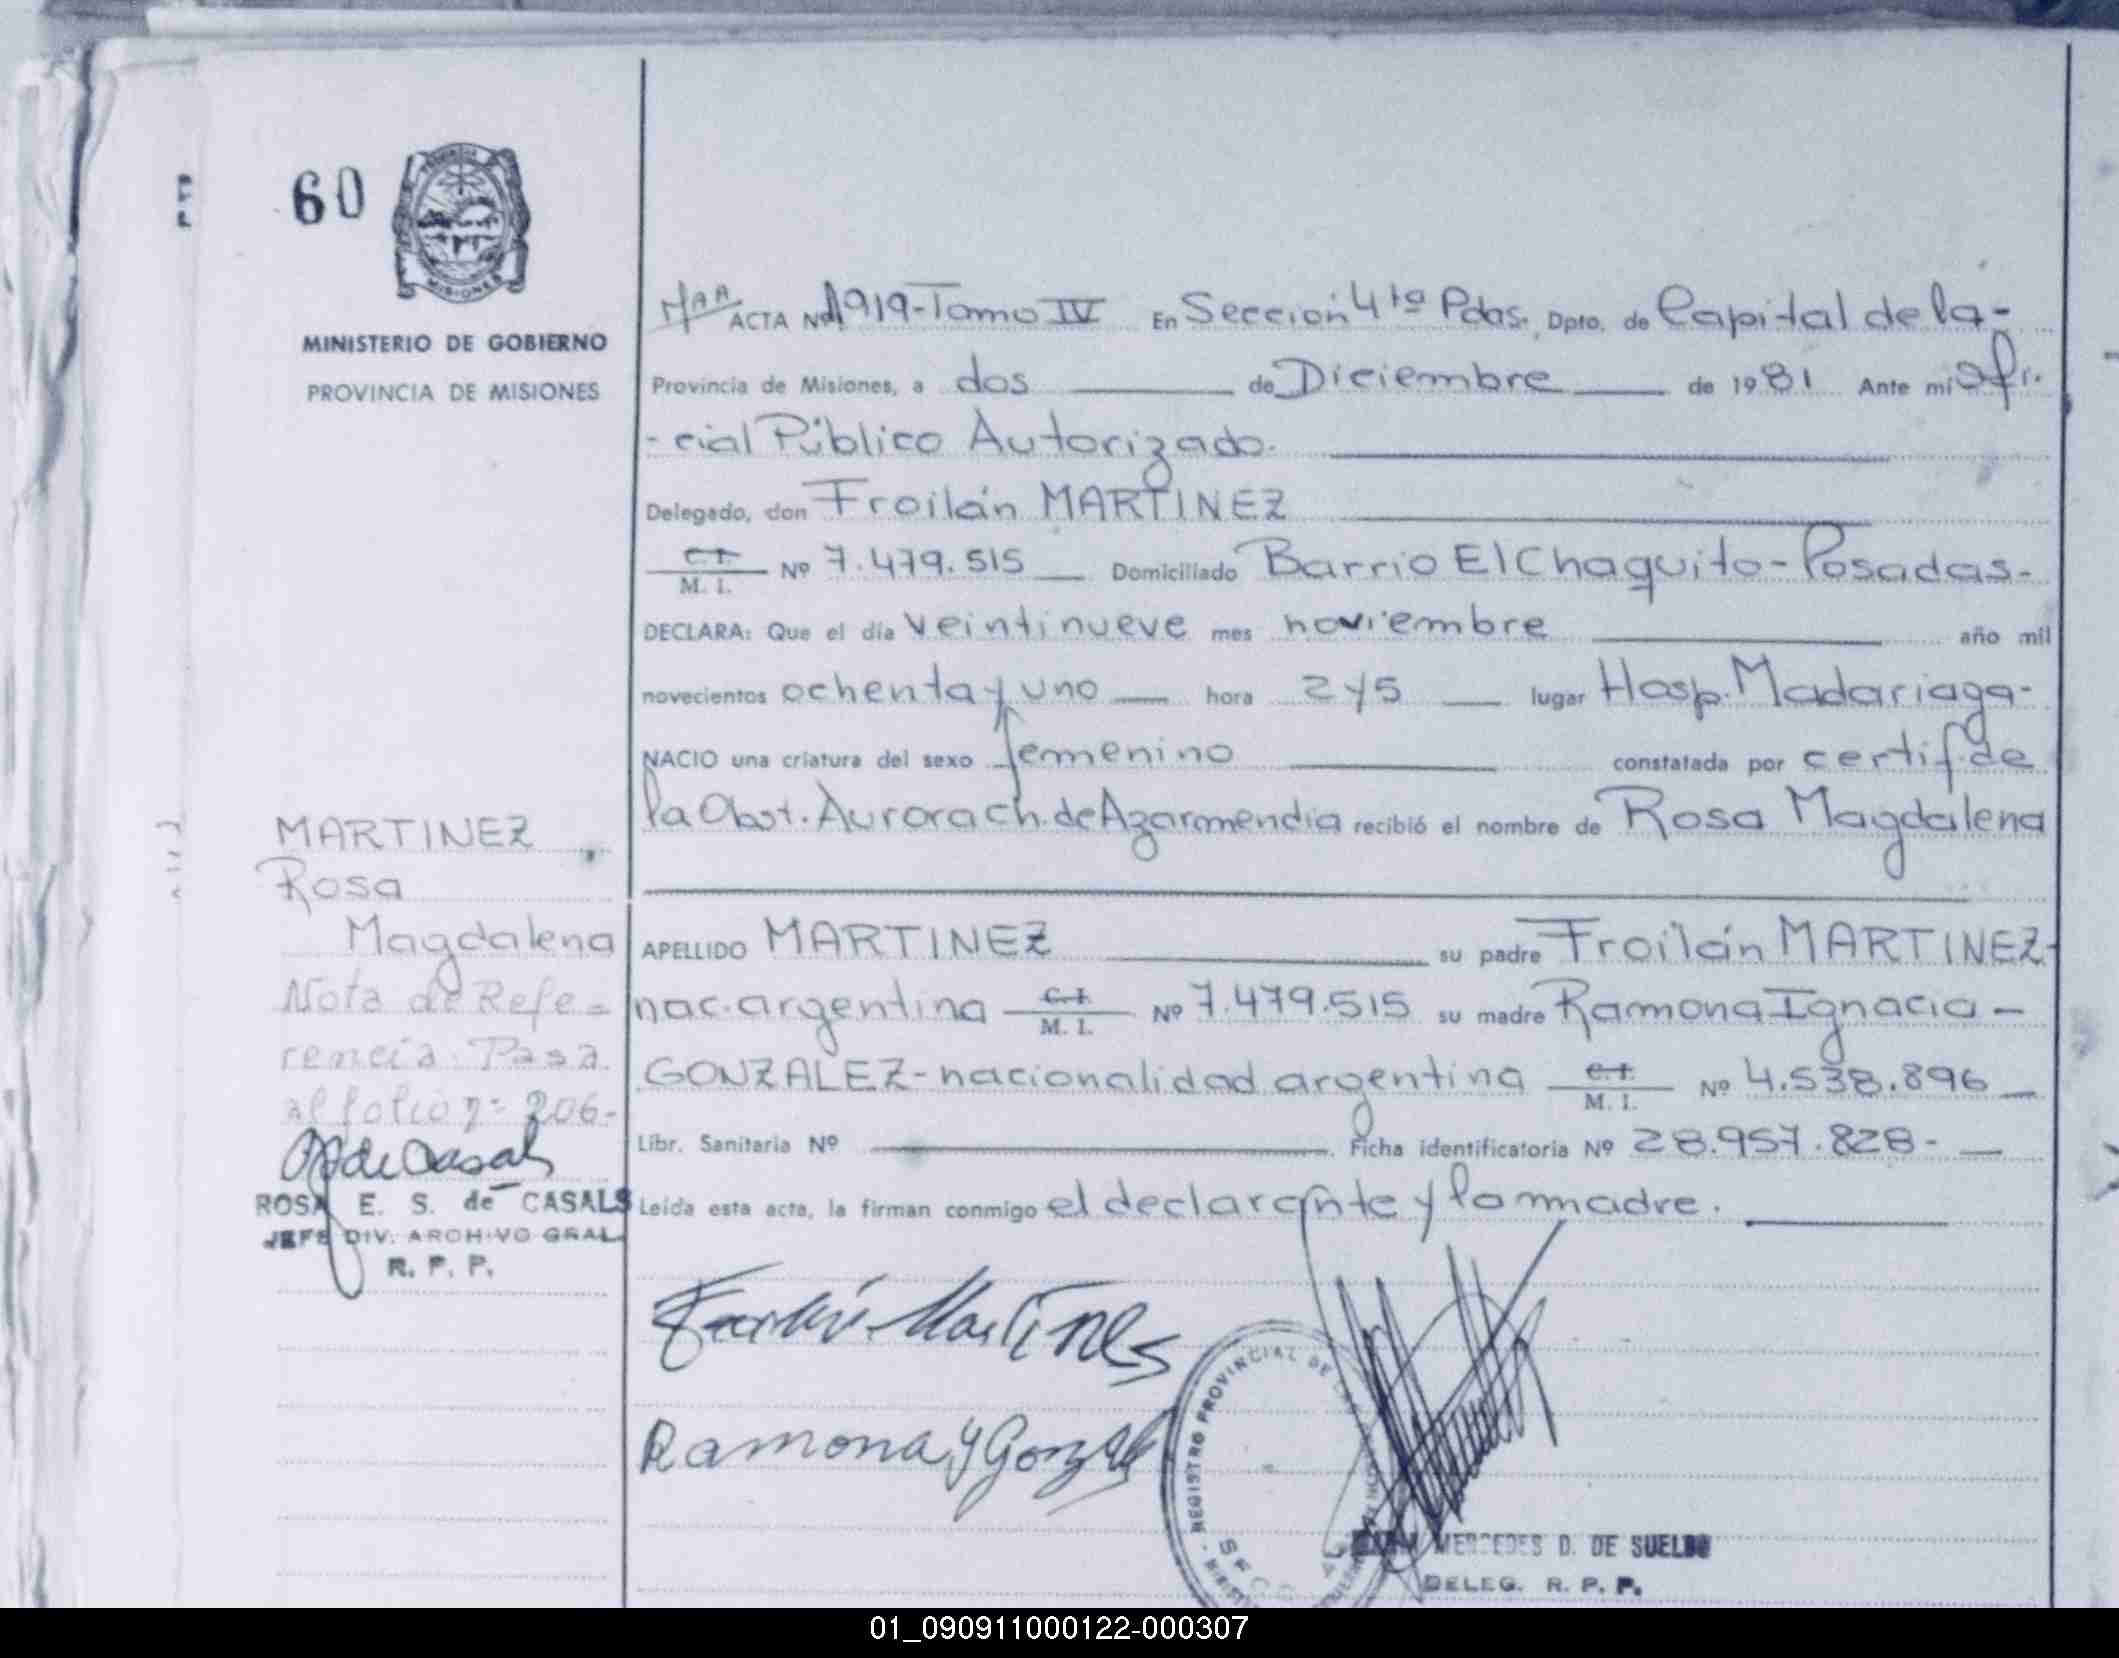 60
MISIONES
MINISTERIO DE GOBIERNO
PROVINCIA DE MISIONES
ACTA Nº 1919-Tomo IV En Sección 4ta Pdas. Dpto. de Capital de la-
Provincia de Misiones, a dos de Diciembre de 1981 Ante mi Ofi-
-cial Público Autorizado.
Delegado, don Froilán MARTINEZ
C.I.
M. I. Nº 7.479.515 Domiciliado Barrio El Chaquito-Posadas-
DECLARA: Que el día veintinueve mes noviembre año mil
novecientos ochenta y uno hora 2 y 5 lugar Hosp. Madariaga-
NACIO una criatura del sexo femenino constatada por certif. de
la Obst. Aurora Ch. de Azarmendia recibió el nombre de Rosa Magdalena
MARTINEZ
Rosa
Magdalena
Nota de Refe=
rencia: Pasa
al folio nº 206-
ROSA E. S. de CASALS
JEFE DIV. ARCHIVO GRAL
R. P. P.
APELLIDO MARTINEZ su padre Froilán MARTINEZ-
nac. argentina C.I. M. I. Nº 7.479.515 su madre Ramona Ignacia-
GONZALEZ-nacionalidad argentina C.I. M. I. Nº 4.538.896
Libr. Sanitaria Nº Ficha identificatoria Nº 28.957.828-
Leída esta acta, la firman conmigo el declarante y la madre.
Ramona Y Gonzalez
REGISTRO PROVINCIAL DE
MERCEDES D. DE SUELDO
DELEG. R. P. P.
01_090911000122-000307